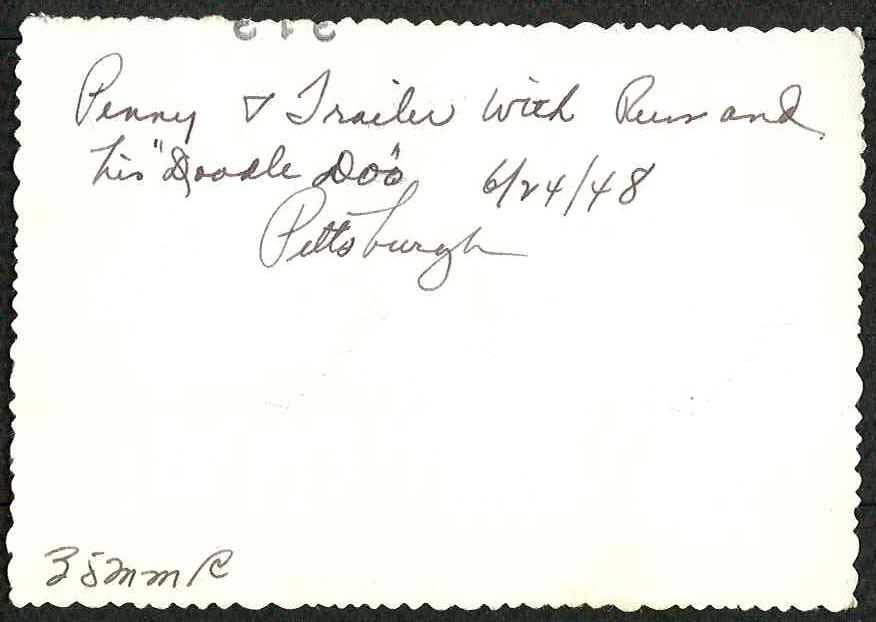 Penny & Trailer with Russ and
his "Doodle Doo" 6/24/48
Pittsburgh
35mm